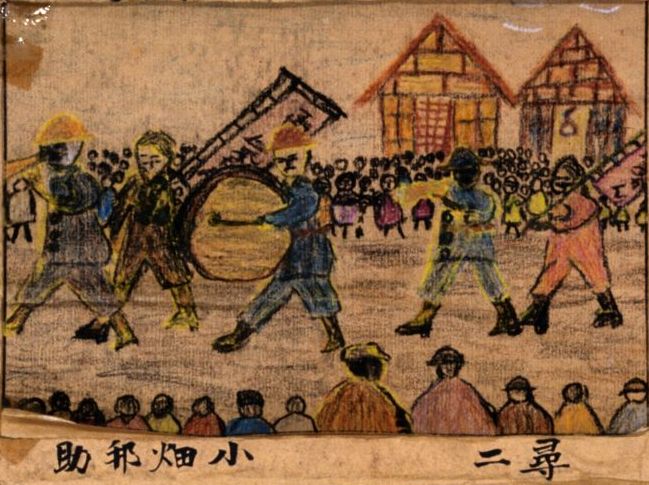 尋二 小畑邦助